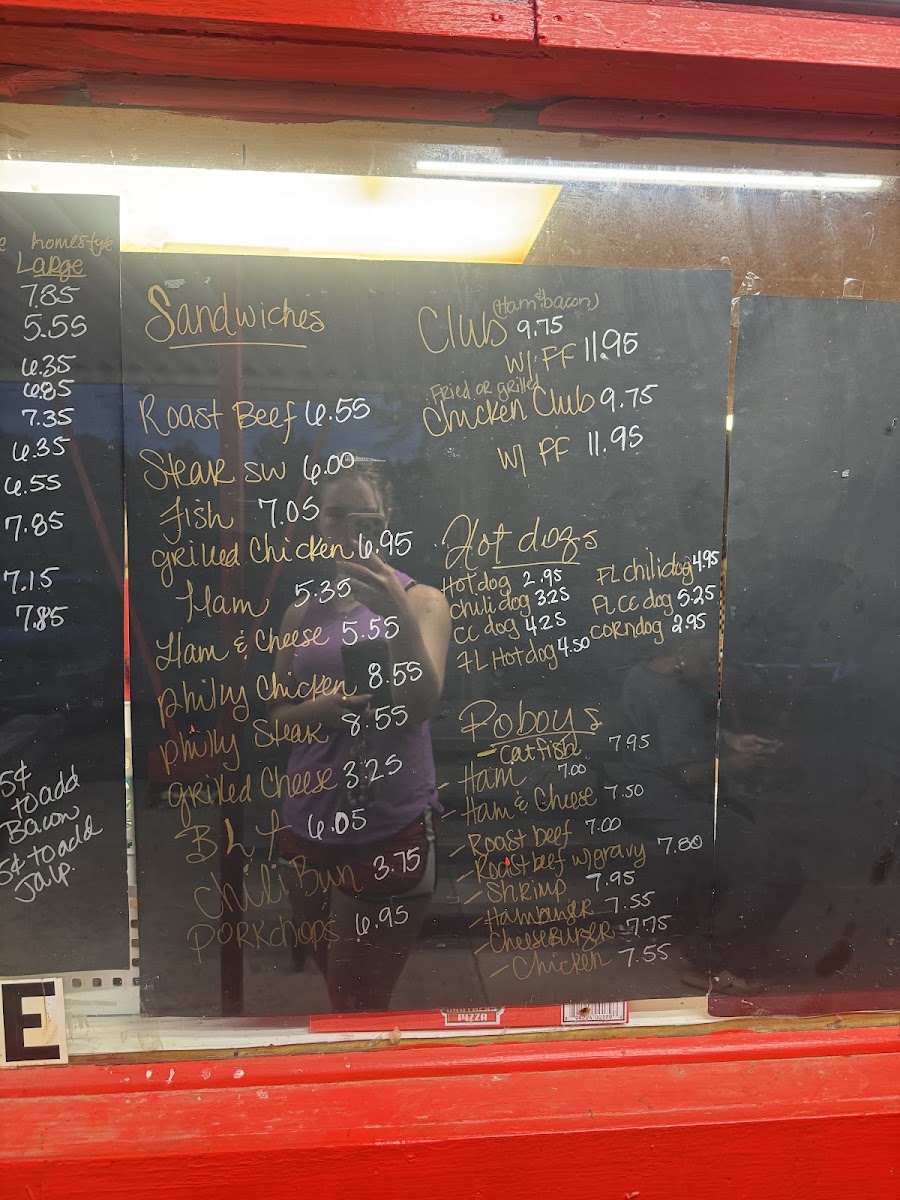 homestyle
Large
7.85
5.55
6.35
6.85
7.35
6.35
6.55
7.85
7.15
7.85
5¢
to add
Bacon
5¢ to add
Jalp.
E
Sandwiches
Roast Beef 6.55
Steak SW 6.00
Fish 7.05
grilled Chicken 6.95
Ham 5.35
Ham & Cheese 5.55
Philly Chicken 8.55
Philly Steak 8.55
grilled Cheese 3.25
BLT 6.05
Chili Bun 3.75
Porkchops 6.95
(Ham & bacon)
Club 9.75
W/ FF 11.95
Fried or grilled
Chicken Club 9.75
W/ FF 11.95
Hot dogs
Hot dog 2.95
Chili dog 3.25
CC dog 4.25
FL Hot dog 4.50
FL chili dog 4.95
FL CC dog 5.25
Corndog 2.95
Poboys
- Catfish 7.95
- Ham 7.00
- Ham & Cheese 7.50
- Roast beef 7.00
- Roast beef w/gravy 7.80
- Shrimp 7.95
- Hamburger 7.55
- Cheeseburger 7.75
- Chicken 7.55
PIZZA